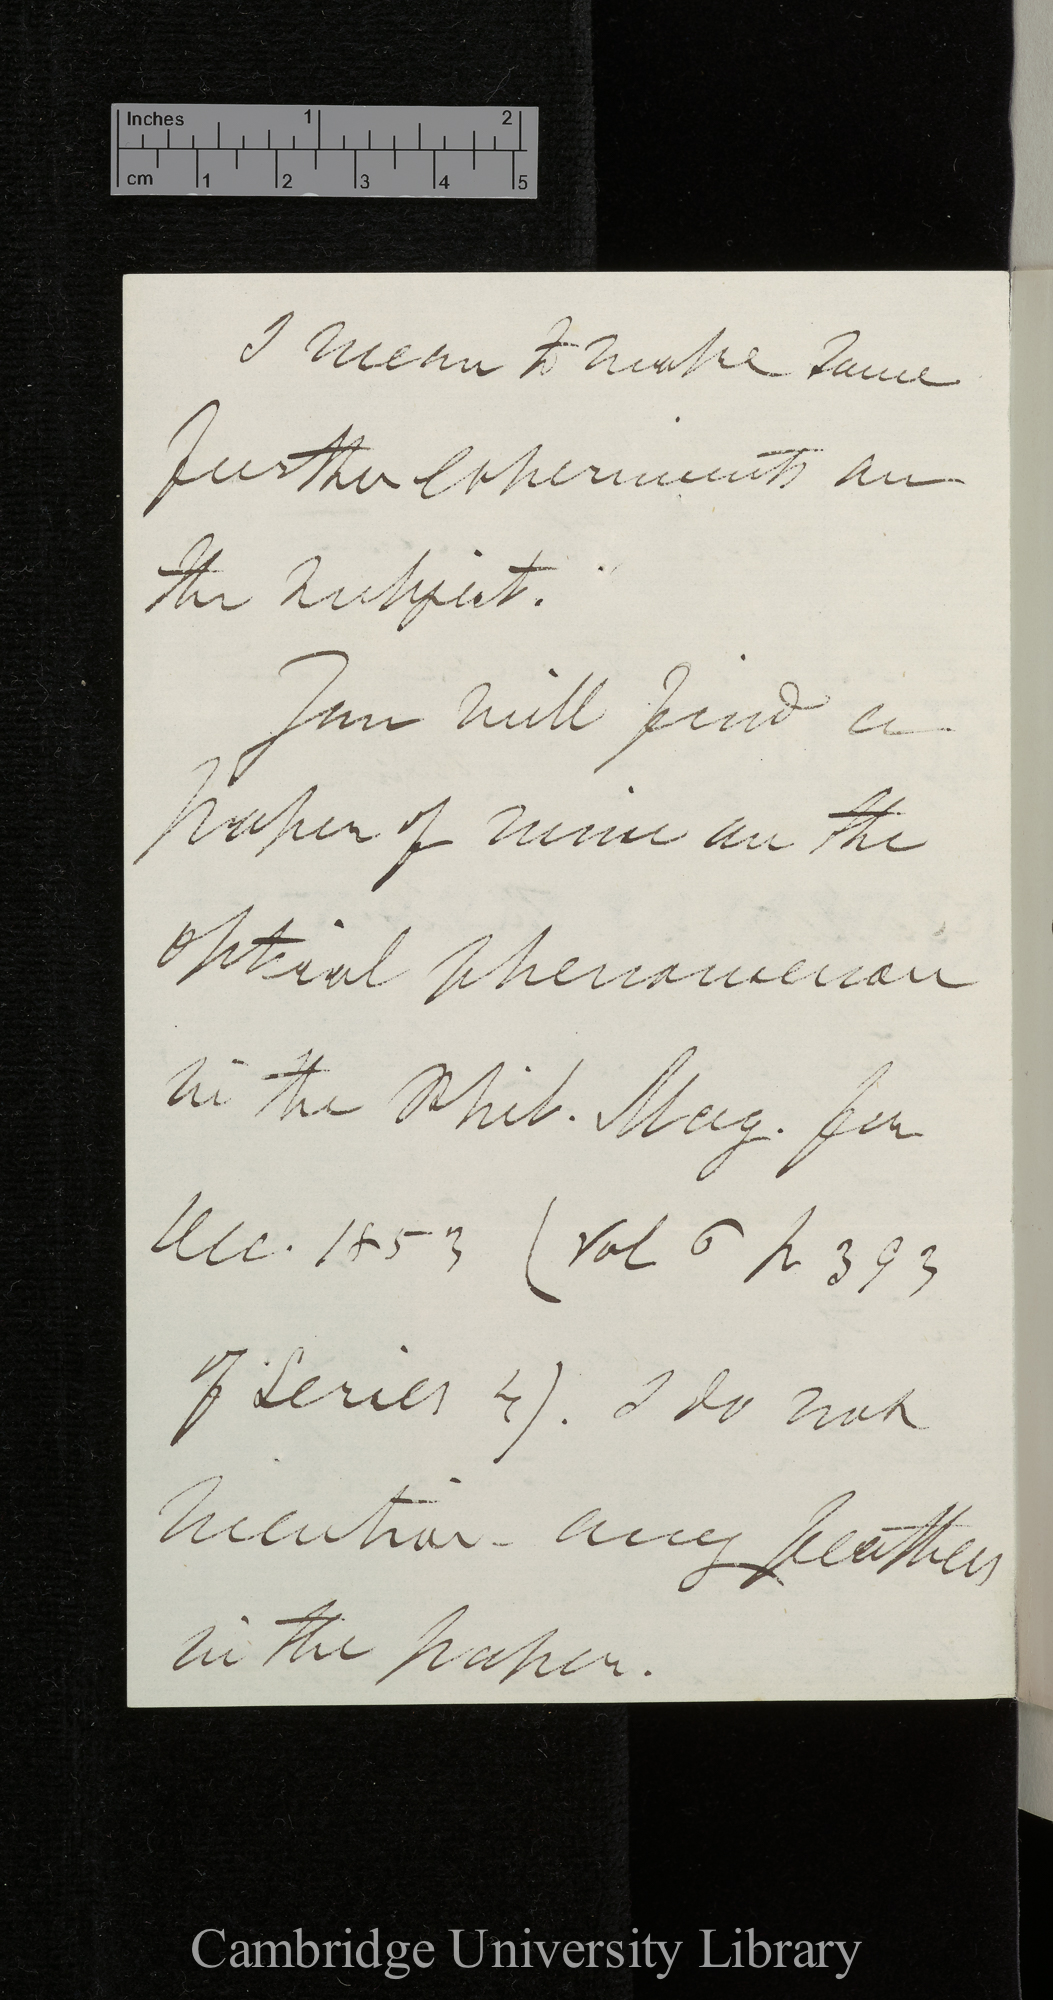 Inches 1 2
cm 1 2 3 4 5
I mean to make some
further experiments on
the subject."
You will find a
paper of mine on the
optical phenomenon
in the Phil. Mag. for
Dec. 1853 (vol 6 p 393
of Series 4). I do not
mention any feathers
in the paper.
Cambridge University Library